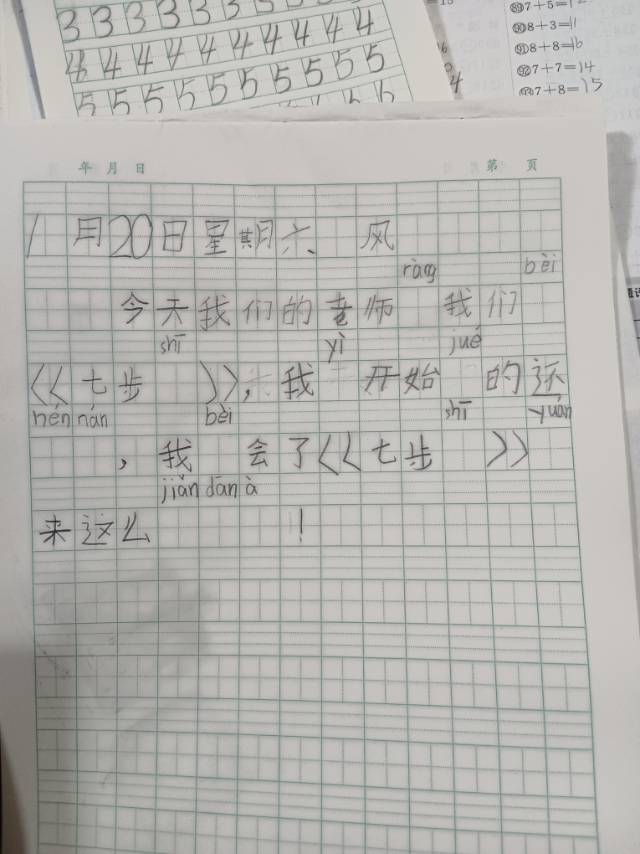 3 3 3 3 3 3 3 3 3
4 4 4 4 4 4 4 4 4
5 5 5 5 5 5 5 5 5
89 7+5=12
90 8+3=11
91 8+8=16
92 7+7=14
93 7+8=15
年 月 日 第 页
1月20日星期六 风
ràng bèi
今天我们的老师 我们
shī yì jué
《七步 》,我 开始 的还
hén nán bèi shī yuán
,我 会了《七步 》
jiǎn dān à
来这么 !